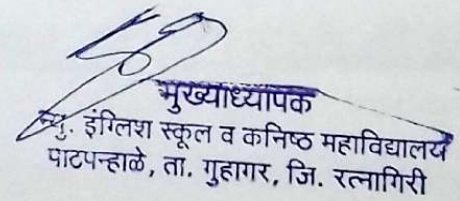 मुख्याध्यापक
न्यु. इंग्लिश स्कूल व कनिष्ठ महाविद्यालय
पाटपन्हाळे, ता. गुहागर, जि. रत्नागिरी